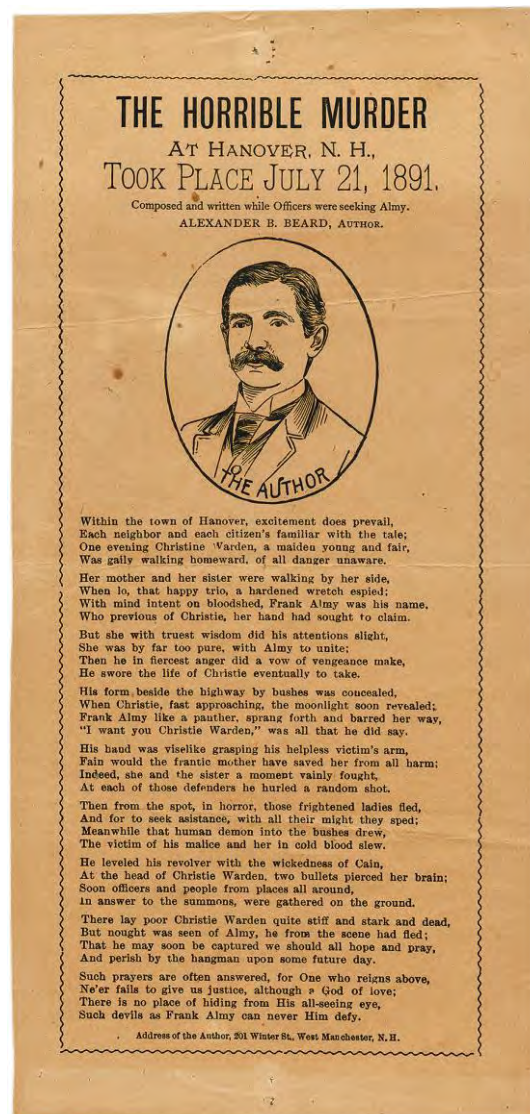 THE HORRIBLE MURDER
AT HANOVER, N. H.,
TOOK PLACE JULY 21, 1891.
Composed and written while Officers were seeking Almy.
ALEXANDER B. BEARD, AUTHOR.
THE AUTHOR
Within the town of Hanover, excitement does prevail,
Each neighbor and each citizen's familiar with the tale;
One evening Christine Warden, a maiden young and fair,
Was gaily walking homeward, of all danger unaware.
Her mother and her sister were walking by her side,
When lo, that happy trio, a hardened wretch espied;
With mind intent on bloodshed, Frank Almy was his name,
Who previous of Christie, her hand had sought to claim.
But she with truest wisdom did his attentions slight,
She was by far too pure, with Almy to unite;
Then he in fiercest anger did a vow of vengeance make,
He swore the life of Christie eventually to take.
His form beside the highway by bushes was concealed,
When Christie, fast approaching, the moonlight soon revealed;
Frank Almy like a panther, sprang forth and barred her way,
"I want you Christie Warden," was all that he did say.
His hand was viselike grasping his helpless victim's arm,
Fain would the frantic mother have saved her from all harm;
Indeed, she and the sister a moment vainly fought,
At each of those defenders he hurled a random shot.
Then from the spot, in horror, those frightened ladies fled,
And for to seek asistance, with all their might they sped;
Meanwhile that human demon into the bushes drew,
The victim of his malice and her in cold blood slew.
He leveled his revolver with the wickedness of Cain,
At the head of Christie Warden, two bullets pierced her brain;
Soon officers and people from places all around,
In answer to the summons, were gathered on the ground.
There lay poor Christie Warden quite stiff and stark and dead,
But nought was seen of Almy, he from the scene had fled;
That he may soon be captured we should all hope and pray,
And perish by the hangman upon some future day.
Such prayers are often answered, for One who reigns above,
Ne'er fails to give us justice, although a God of love;
There is no place of hiding from His all-seeing eye,
Such devils as Frank Almy can never Him defy.
Address of the Author, 201 Winter St., West Manchester, N. H.